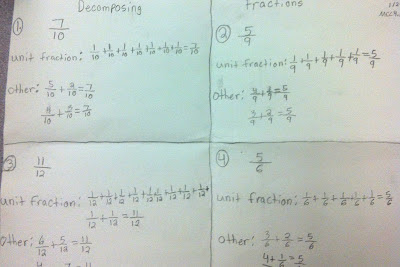 Decomposing fractions
① 7/10
unit fraction: 1/10 + 1/10 + 1/10 + 1/10 + 1/10 + 1/10 + 1/10 = 7/10
other: 5/10 + 2/10 = 7/10
② 5/9
unit fraction: 1/9 + 1/9 + 1/9 + 1/9 + 1/9 = 5/9
other: 4/9 + 1/9 = 5/9
3/9 + 2/9 = 5/9
③ 11/12
unit fraction: 1/12 + 1/12 + 1/12 + 1/12 + 1/12 + 1/12 + 1/12 + 1/12 + 1/12 +
1/12 + 1/12 = 11/12
other: 6/12 + 5/12 = 11/12
④ 5/6
unit fraction: 1/6 + 1/6 + 1/6 + 1/6 + 1/6 = 5/6
other: 3/6 + 2/6 = 5/6
4 + 1/6 = 5